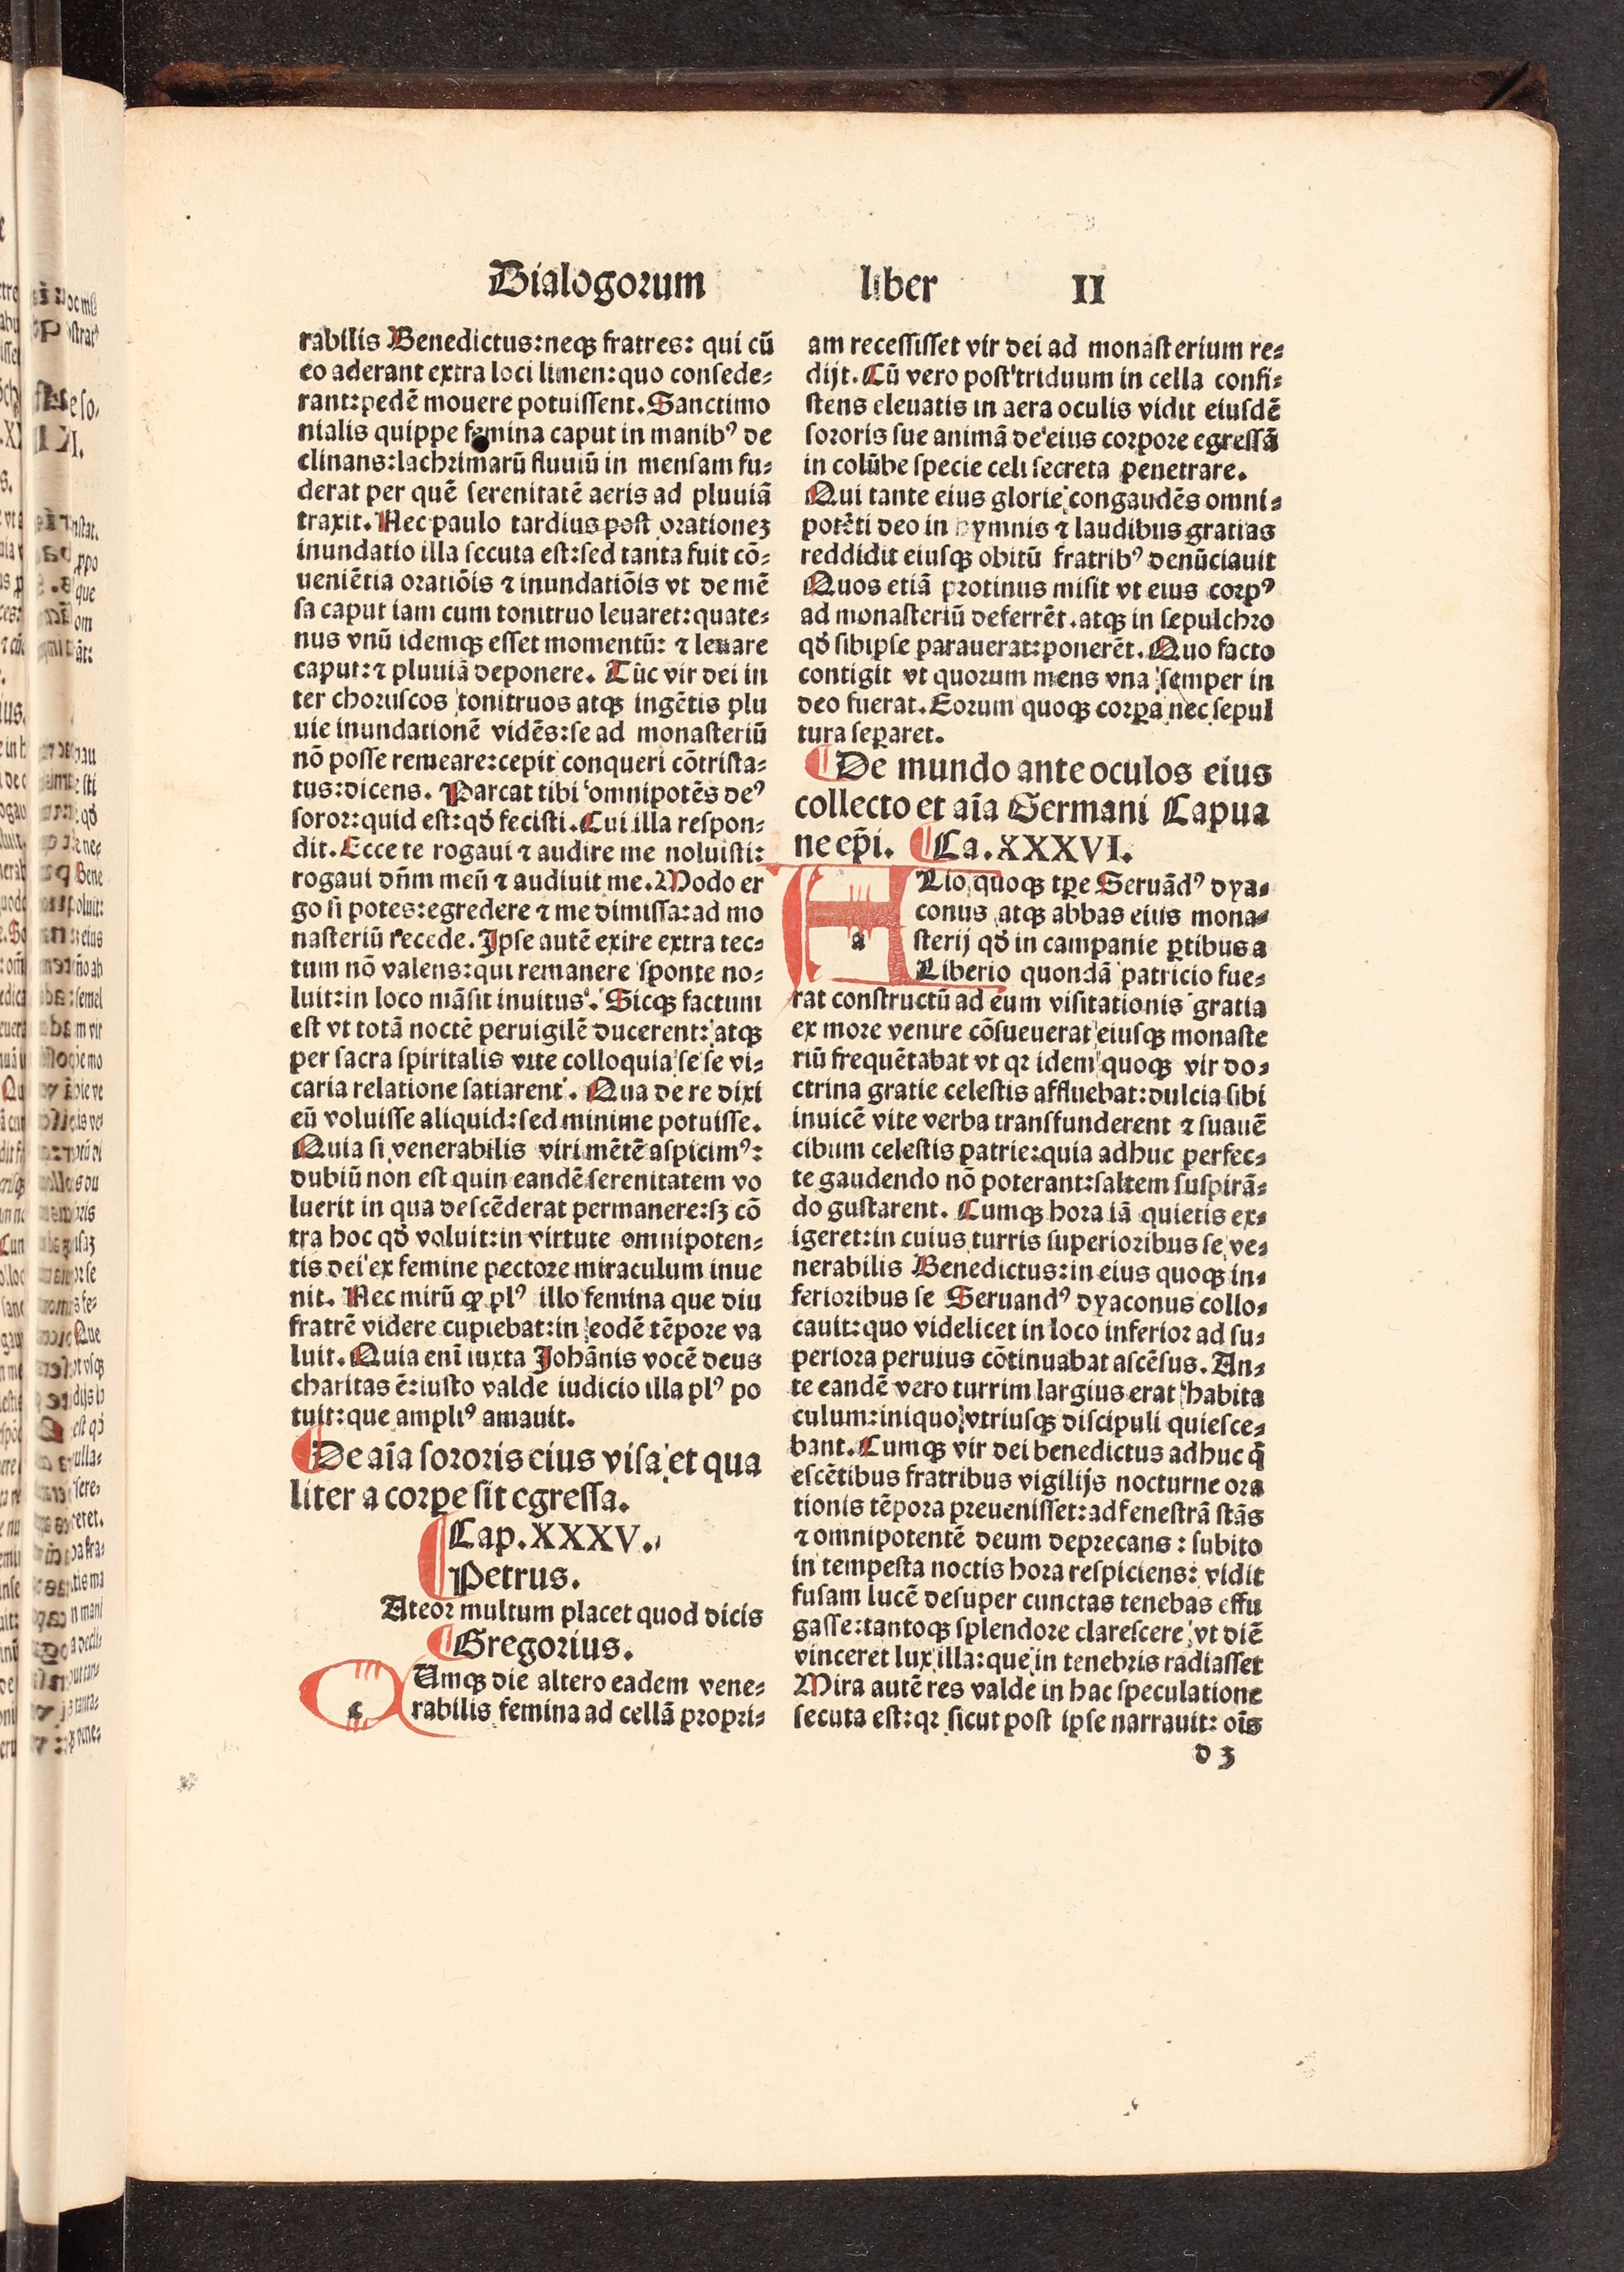 Dialogorum liber II
rabilis Benedictus:neqꝫ fratres: qui cū
eo aderant extra loci limen:quo consede⸗
rant:pedē mouere potuissent. Sanctimo
nialis quippe femina caput in manibꝰ de
clinans:lachrimarū fluuiū in mensam fu⸗
derat per quē serenitatē aeris ad pluuiā
traxit. Nec paulo tardius post orationeꝫ
inundatio illa secuta est:sed tanta fuit cō⸗
ueniētia oratiōis ⁊ inundatiōis vt de mē
sa caput iam cum tonitruo leuaret:quate⸗
nus vnū idemqꝫ esset momentū: ⁊ leuare
caput:⁊ pluuiā deponere. Tūc vir dei in
ter choruscos tonitruos atqꝫ ingētis plu
uie inundationē vidēs:se ad monasteriū
nō posse remeare:cepit conqueri cōtrista⸗
tus:dicens. Parcat tibi omnipotēs deꝰ
soror:quid est:qđ fecisti. Cui illa respon⸗
dit. Ecce te rogaui ⁊ audire me noluisti:
rogaui dn̄m meū ⁊ audiuit me. Modo er
go si potes:egredere ⁊ me dimissa:ad mo
nasteriū recede. Ipse autē exire extra tec⸗
tum nō valens:qui remanere sponte no⸗
luit:in loco māsit inuitus. Sicqꝫ factum
est vt totā noctē peruigilē ducerent: atqꝫ
per sacra spiritalis vite colloquia se se vi⸗
caria relatione satiarent. Qua de re dixi
eū voluisse aliquid:sed minime potuisse.
Quia si venerabilis viri mētē aspicimꝰ:
dubiū non est quin eandē serenitatem vo
luerit in qua descēderat permanere:sꝫ cō
tra hoc qđ voluit:in virtute omnipoten⸗
tis dei ex femine pectore miraculum inue
nit. Nec mirū ꝙ plꝰ illo femina que diu
fratrē videre cupiebat:in eodē tēpore va
luit. Quia enī iuxta Johānis vocē deus
charitas ē:iusto valde iudicio illa plꝰ po
tuit:que ampliꝰ amauit.
¶De aīa sororis eius visa et qua
liter a corꝑe sit egressa.
¶Cap.XXXV.
¶Petrus.
Ateor multum placet quod dicis
¶Gregorius.
c Umqꝫ die altero eadem vene⸗
rabilis femina ad cellā propri⸗
am recessisset vir dei ad monasterium re⸗
dijt. Cū vero post triduum in cella consi⸗
stens eleuatis in aera oculis vidit eiusdē
sororis sue animā de eius corpore egressā
in colūbe specie celi secreta penetrare.
Qui tante eius glorie congaudēs omni⸗
potēti deo in hymnis ⁊ laudibus gratias
reddidit eiusqꝫ obitū fratribꝰ denūciauit
Quos etiā protinus misit vt eius corpꝰ
ad monasteriū deferrēt. atqꝫ in sepulchro
qđ sibiipse parauerat:ponerēt. Quo facto
contigit vt quorum mens vna semper in
deo fuerat. Eorum quoqꝫ corꝑa nec sepul
tura seꝑaret.
¶De mundo ante oculos eius
collecto et aīa Germani Capua
ne ep̄i. ¶Ca.XXXVI.
a Lio quoqꝫ tꝑe Seruādꝰ dya⸗
conus atqꝫ abbas eius mona⸗
sterij qđ in campanie ꝑtibus a
Liberio quondā patricio fue⸗
rat constructū ad eum visitationis gratia
ex more venire cōsueuerat eiusqꝫ monaste
riū frequētabat vt qꝛ idem quoqꝫ vir do⸗
ctrina gratie celestis affluebat:dulcia sibi
inuicē vite verba transfunderent ⁊ suauē
cibum celestis patrie:quia adhuc perfec⸗
te gaudendo nō poterant:saltem suspirā⸗
do gustarent. Cumqꝫ hora iā quietis ex⸗
igeret:in cuius turris superioribus se ve⸗
nerabilis Benedictus:in eius quoqꝫ in⸗
ferioribus se Seruandꝰ dyaconus collo⸗
cauit:quo videlicet in loco inferior ad su⸗
periora peruius cōtinuabat ascēsus. An⸗
te eandē vero turrim largius erat habita
culum:in quo vtriusqꝫ discipuli quiesce⸗
bant. Cumqꝫ vir dei benedictus adhuc q̄
escētibus fratribus vigilijs nocturne ora
tionis tēpora preuenisset:ad fenestrā stās
⁊ omnipotentē deum deprecans: subito
in tempesta noctis hora respiciens: vidit
fusam lucē desuper cunctas tenebas effu
gasse:tantoqꝫ splendore clarescere vt diē
vinceret lux illa:que in tenebris radiasset
Mira autē res valde in hac speculatione
secuta est:qꝛ sicut post ipse narrauit: oīs
d 3